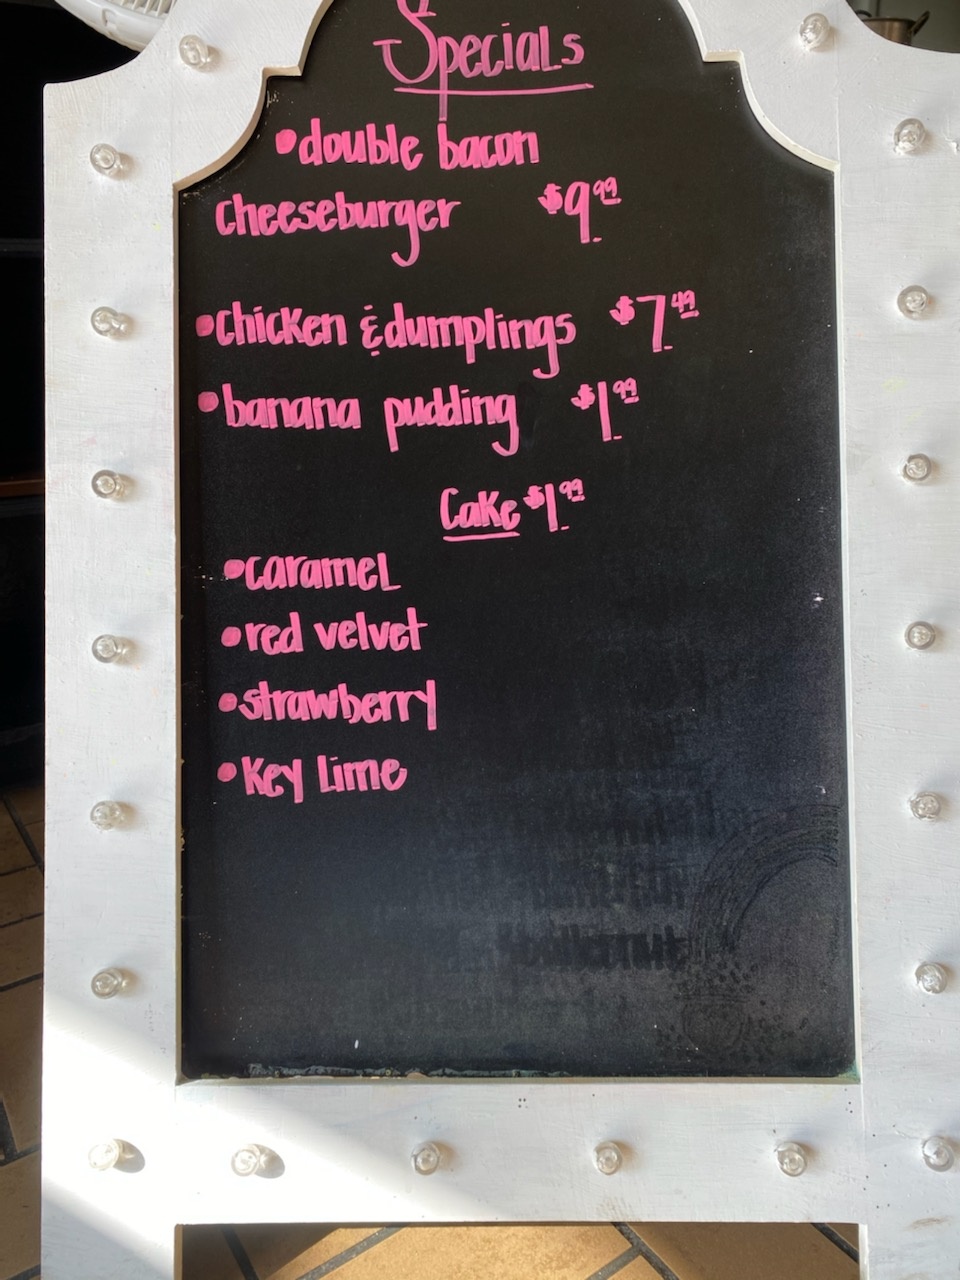 Specials
•double bacon
cheeseburger $9.99
•chicken & dumplings $7.49
•banana pudding $1.99
Cake $1.99
•caramel
•red velvet
•strawberry
•Key Lime